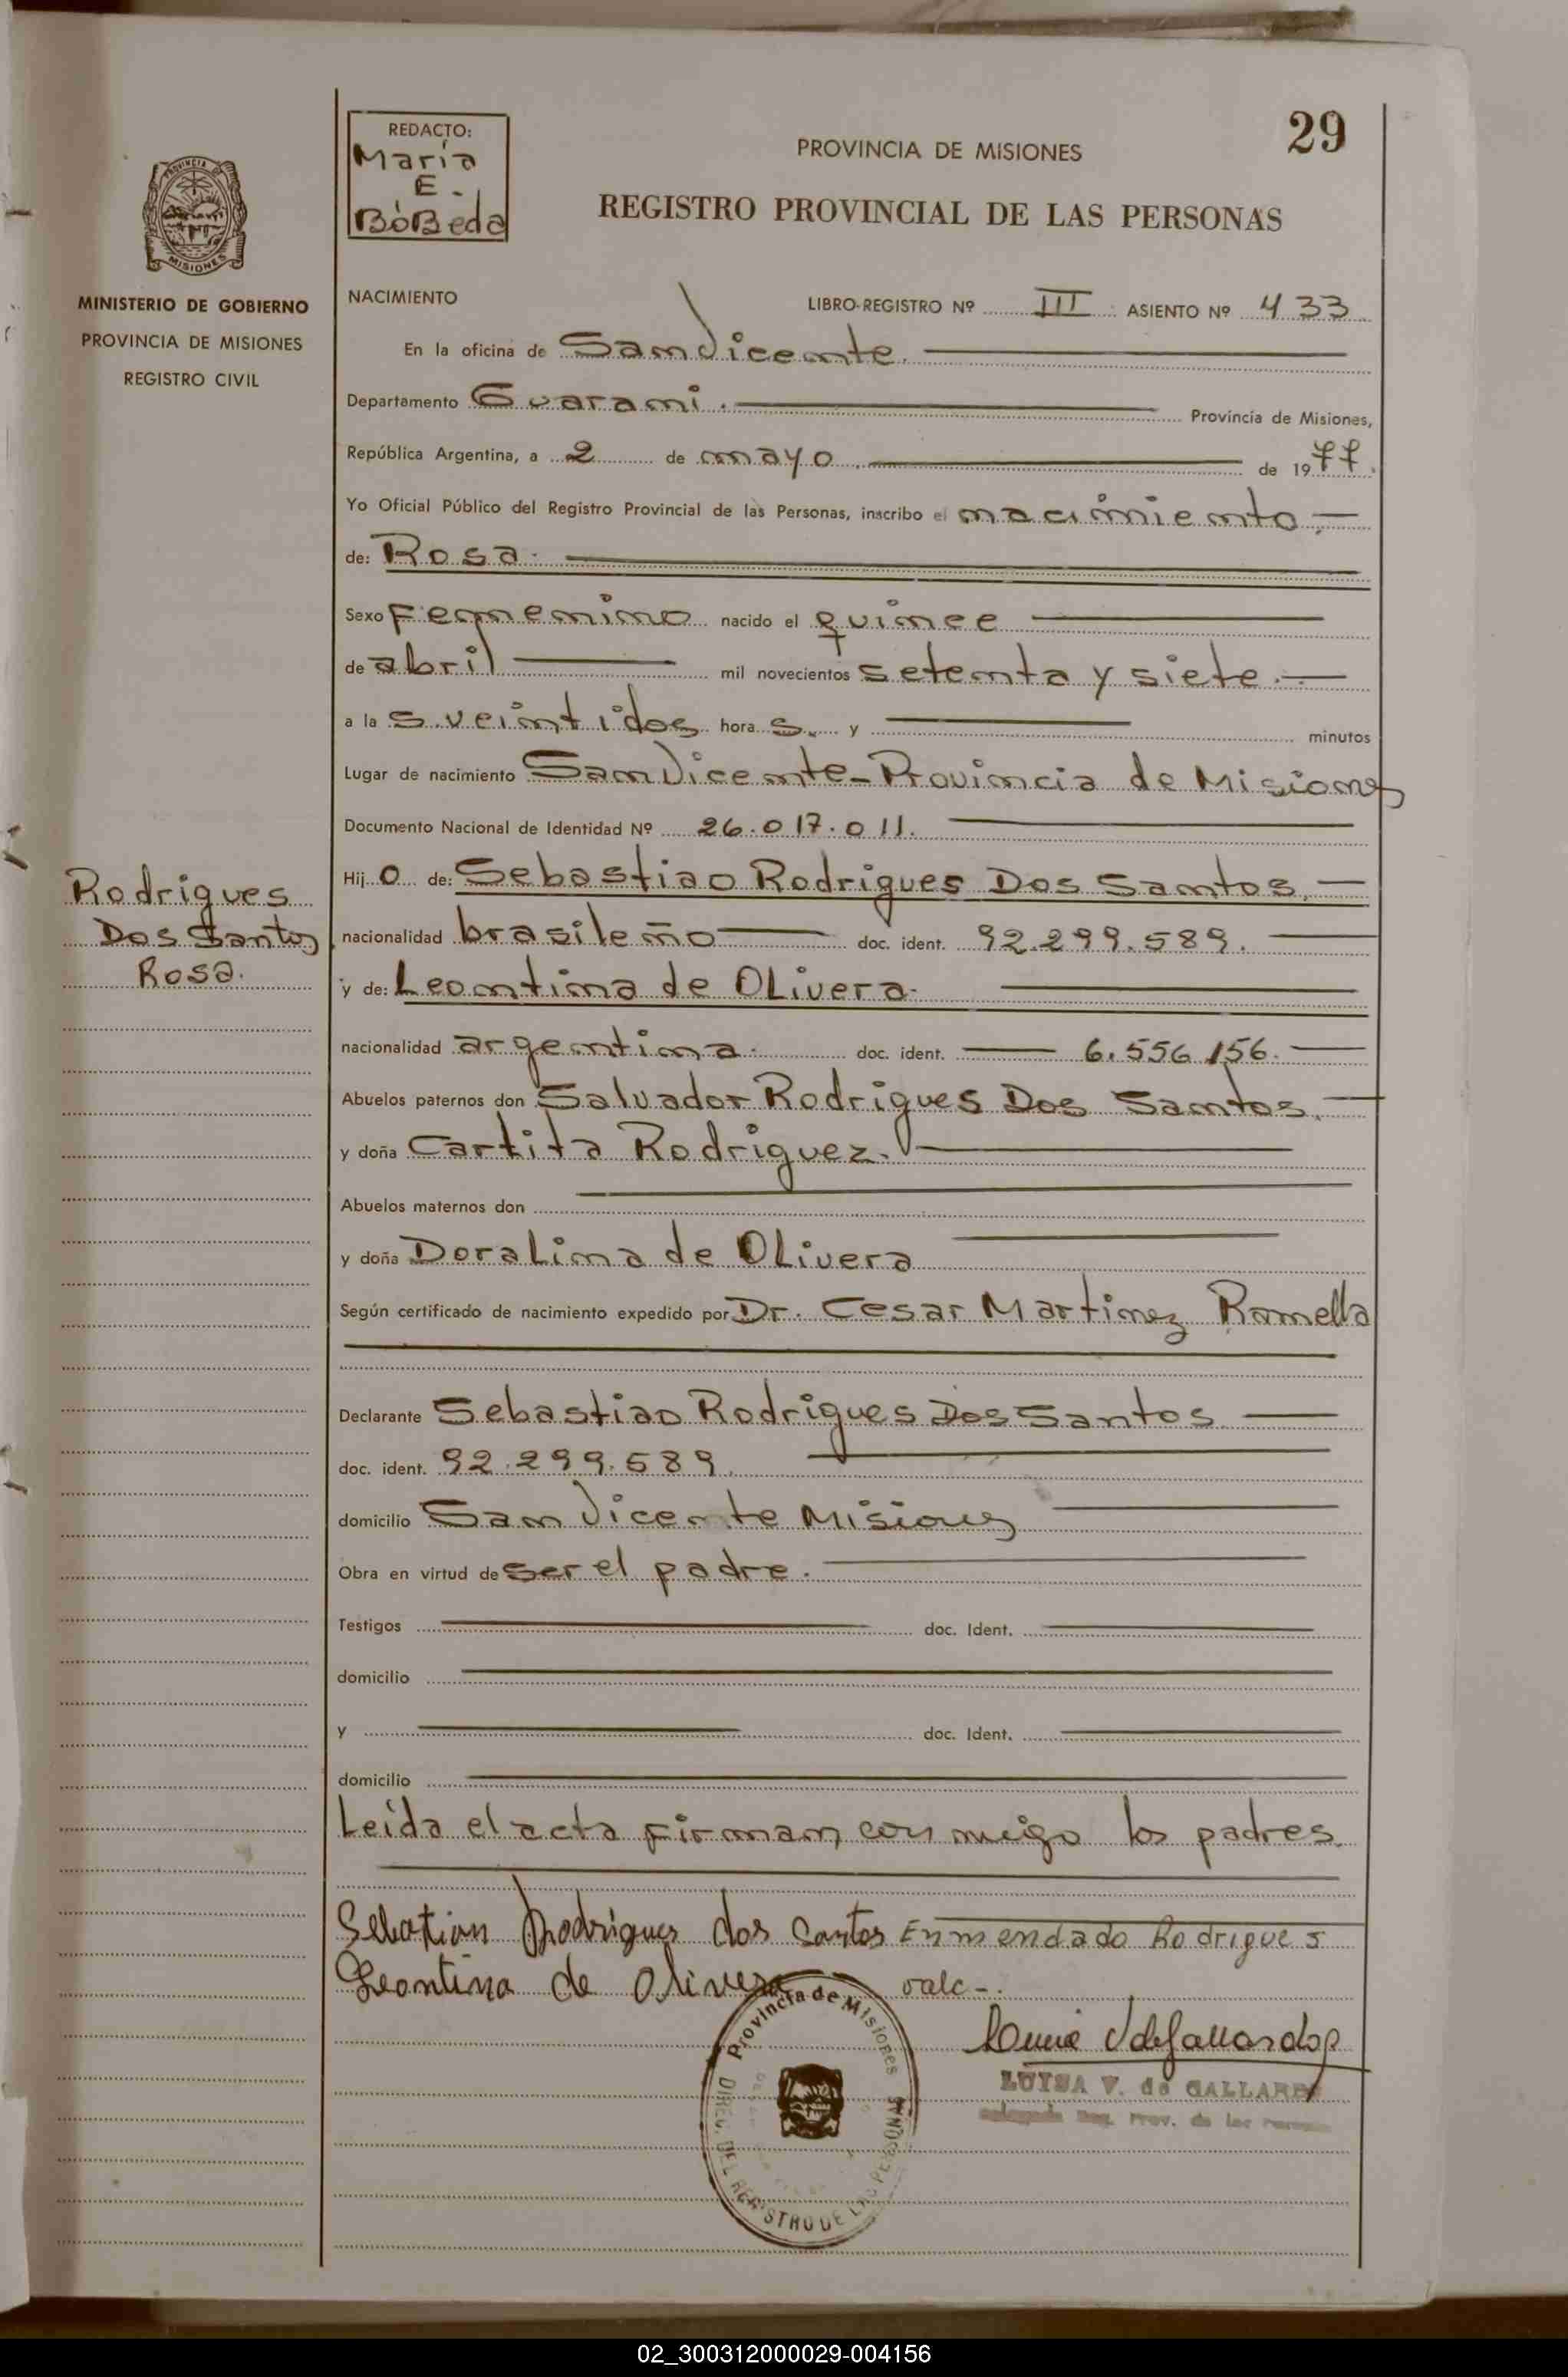 29
REDACTO:
María
E.
BóBeda
PROVINCIA DE MISIONES
REGISTRO PROVINCIAL DE LAS PERSONAS
PROVINCIA
MISIONES
MINISTERIO DE GOBIERNO
PROVINCIA DE MISIONES
REGISTRO CIVIL
NACIMIENTO LIBRO-REGISTRO Nº III ASIENTO Nº 433
En la oficina de San Vicente.
Departamento Guarani. Provincia de Misiones,
República Argentina, a 2 de mayo de 1977.
Yo Oficial Público del Registro Provincial de las Personas, inscribo el nacimiento
de: Rosa.
Sexo Femenino nacido el quince
de abril mil novecientos setenta y siete.
a la s veintidos hora s. y minutos
Lugar de nacimiento San Vicente-Provincia de Misiones
Documento Nacional de Identidad Nº 26.017.011.
Hij o de: Sebastiao Rodrigues Dos Santos.
Rodrigues
Dos Santos
Rosa.
nacionalidad brasileño doc. ident. 92.299.589.
y de: Leontina de OLivera.
nacionalidad argentina. doc. ident. 6.556.156.
Abuelos paternos don Salvador Rodrigues Dos Santos.
y doña Cartita Rodriguez.
Abuelos maternos don
y doña DoraLina de OLivera
Según certificado de nacimiento expedido por Dr. Cesar Martinez Ramella
Declarante Sebastiao Rodrigues Dos Santos
doc. ident. 92.299.589.
domicilio San Vicente Misiones
Obra en virtud de ser el padre.
Testigos doc. Ident.
domicilio
y doc. Ident.
domicilio
Leída el acta Firman con migo los padres.
Sebatian Rodrigues dos Santos Enmendado Rodrigues
Leontina de Olivera vale-.
Provincia de Misiones
DIREC. DEL REGISTRO DE LAS PERSONAS
LUISA V. de GALLARDO
Reg. Prov. de las Personas
02_300312000029-004156